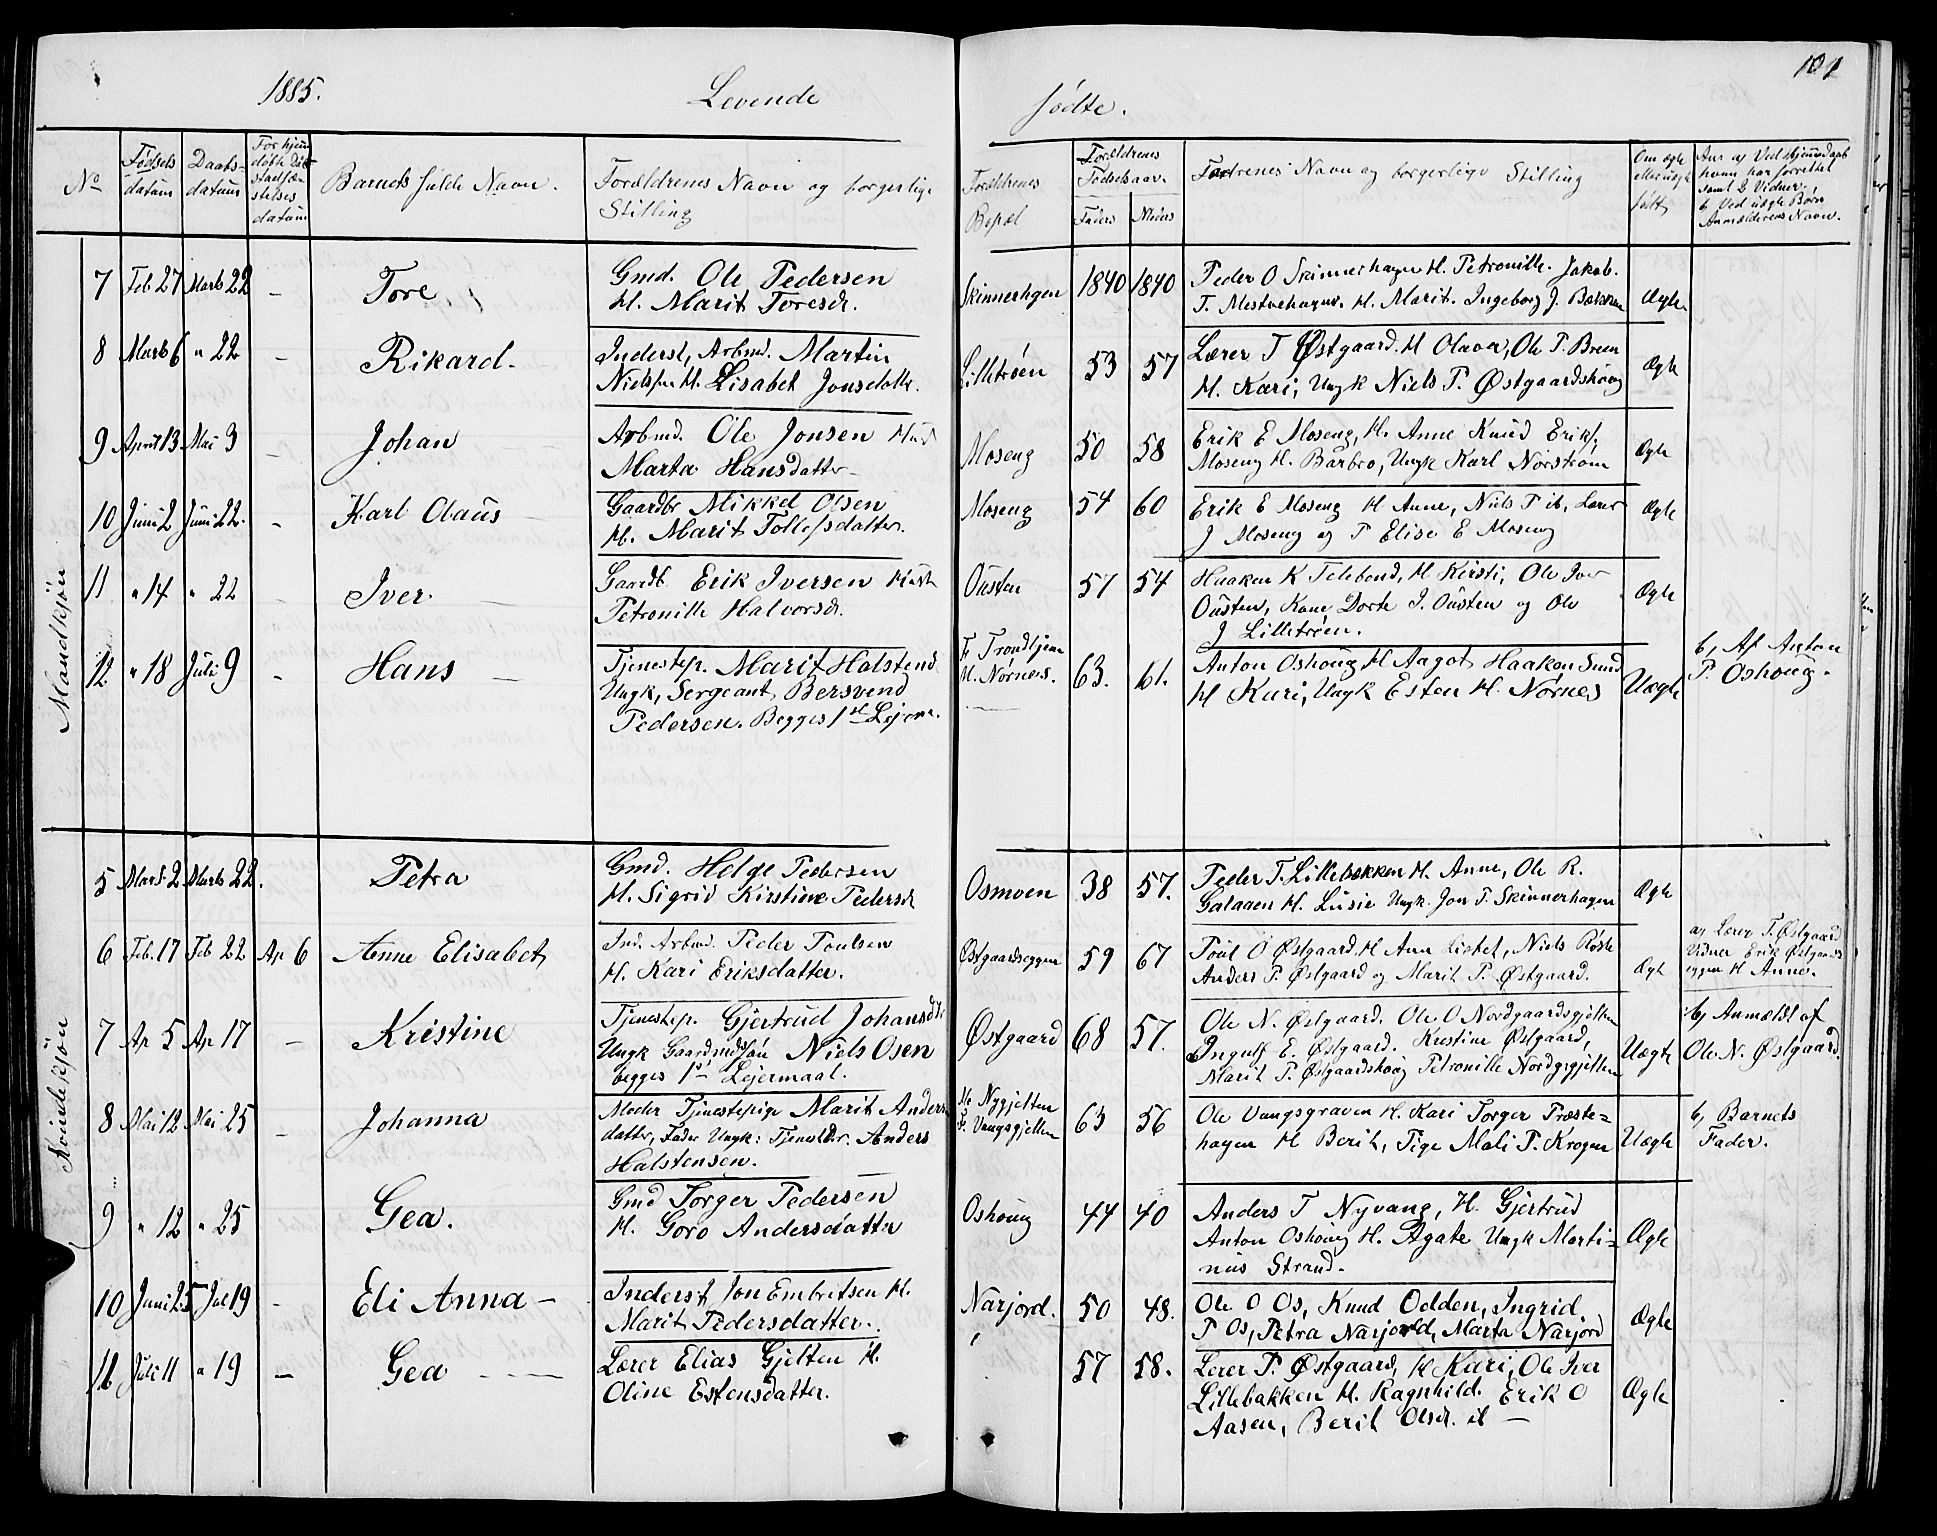 1885.
Levende
fødte.
101
No
Fødsels datum
Daabs- datum
For hjemdøbte Daabs stadfæstelses datum
Barnets fulde Navn.
Forældrenes Navn og borgerlige Stilling
Forældrenes Bopæl
Forældrenes Fødselsaar.
Faders
Moders
Faddrenes Navn og borgerlige Stilling
Om ægte eller uægte født
Ved hjemmedaab hvem har forrettet samt 2 Vidner.
b, Ved uægte Børn Anmelderens Navn.
Mandkjøn
7 Feb 27 Marts 22 – Tore
Gmd. Ole Pedersen
H. Marit Toresdr.
Skinnerhgen 1840 1840
Peder O Skinnerhagen H. Petronille. Jakob.
T. Mestvehagen. H. Marit. Ingeborg J. Bakken
Ægte.
8 Marts 6 " 22 – Rikard.
Inderst, Arbmd. Martin
Nielsen H. Lisabet Jonsdattr.
Lilletrøen 53 57
Lærer T Østgaard. H Olava, Ole P. Breen
H. Kari, Ungk Niels P. Østgaardshoug
Ægte
9 April 13 Mai 3 – Johan
Arbmd. Ole Jonsen Hust
Marta Hansdatter
Moseng 50 58
Erik E Moseng, H. Anne Knud Eriks.
Moseng H. Barbro, Ungk Karl Norstrøm
Ægte
10 Juni 2 Juni 22. – Karl Claus
Gaardbr Mikkel Olsen
H. Marit Tollefsdatter.
Moseng 54 60
Erik E Moseng H Anne, Niels P ib, Lærer
J Moseng og P Elise E Moseng
Ægte
11 " 14 " 22 Iver.
Gaardb. Erik Iversen Hust
Petronille Halvorsdr.
Ousten 57 54
Haaken K Telebond, H Kirsti, Ole Iver
Ousten, Kone Dorte J. Ousten og Ole
J Lilletrøen.
Ægte
12 " 18 Juli 9 – Hans
Tjenestep. Marit Halstensd
Ungk, Sergeant Bersvend
Pedersen. Begges 1ste Lejerm.
F. Trondhjem
M. Nørnes. 63. 61.
Anton Oshoug H Aagot Haaken Sund
H Kari, Ungk Esten H. Nørnes
Uægte
b, Af Anton
P. Oshoug.
Kvindekjøn
5 Marts 2 Marts 22. Petra
Gmd. Helge Pedersen
H. Sigrid Kirstine Pedersd
Osmoen 38 57.
Peder T. Lillebakken H. Anne, Ole R.
Galaaen H. Lusie Ungk. Jon P. Skinnerhagen
Ægte
6 Feb. 17 Feb 22 Ap 6 Anne Elisabet
Ind. Arbmd. Peder Poulsen
H. Kari Eriksdatter.
Østgaardseggen 59 67
Poul O Østgaard. H Ane Lisbet, Niels Røste
Anders P. Østgaard og Marit P. Østgaard.
Ægt
af Lærer T. Østgaard
Vidner Erik Østgaards
eggen H Anne.
7 Ap 5 Ap 17 – Kristine
Tjenestep. Gjertrud Johansdtr
Ungk Gaardmdssøn Niels Osen
begges 1ste Lejermaal.
Østgaard 68 57.
Ole N. Østgaard. Ole O Nordgaardsgjelten
Ingulf E. Østgaard. Kristine Østgaard,
Marit P. Østgaardshoug Petronille Nordgsgjelten
Uægte
b, Anmeldt af
Ole N. Østgaard.
8 Mai 12 Mai 25 – Johanna
Moder Tjenestepige Marit Anders
datter, Fader Ungk: Tjenestkr. Anders
Halstensen.
M. Nygjelten
F. Vangsgjelten 63 56
Ole Vangsgraven H. Kari Torger Præste-
hagen H Berit, Pige Mali P. Krogen
Uægte
b, Barnets
Fader.
9 " 12 " 25 Gea.
Gmd Torger Pedersen
H. Goro Andersdatter
Oshoug 44 40
Anders T Nyvang, H. Gjertrud
Anton Oshoug H. Agate Ungk Marti-
nus Strand.
Ægte
10 Juni 25 Jul 19 – Eli Anna –
Inderst Jon Embretsen H.
Marit Pedersdatter.
Narjord. 50 48.
Ole O Os, Knud Odden, Ingrid
P Os, Petra Narjord, Marta Narjord
Ægte
11 Juli 11 " 19 – Gea
Lærer Elias Gjelten H.
Oline Estensdatter.
57 58.
Lærer P. Østgaard, H Kari, Ole Iver
Lillebakken H. Ragnhild. Erik O
Aasen, Berit Olsdr. ib –
Ægte